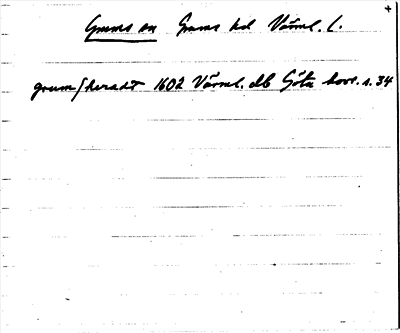 Grums sn Grums hd Värml. l.
grums/heradt 1602 Värml. db Göta hovr. s. 34